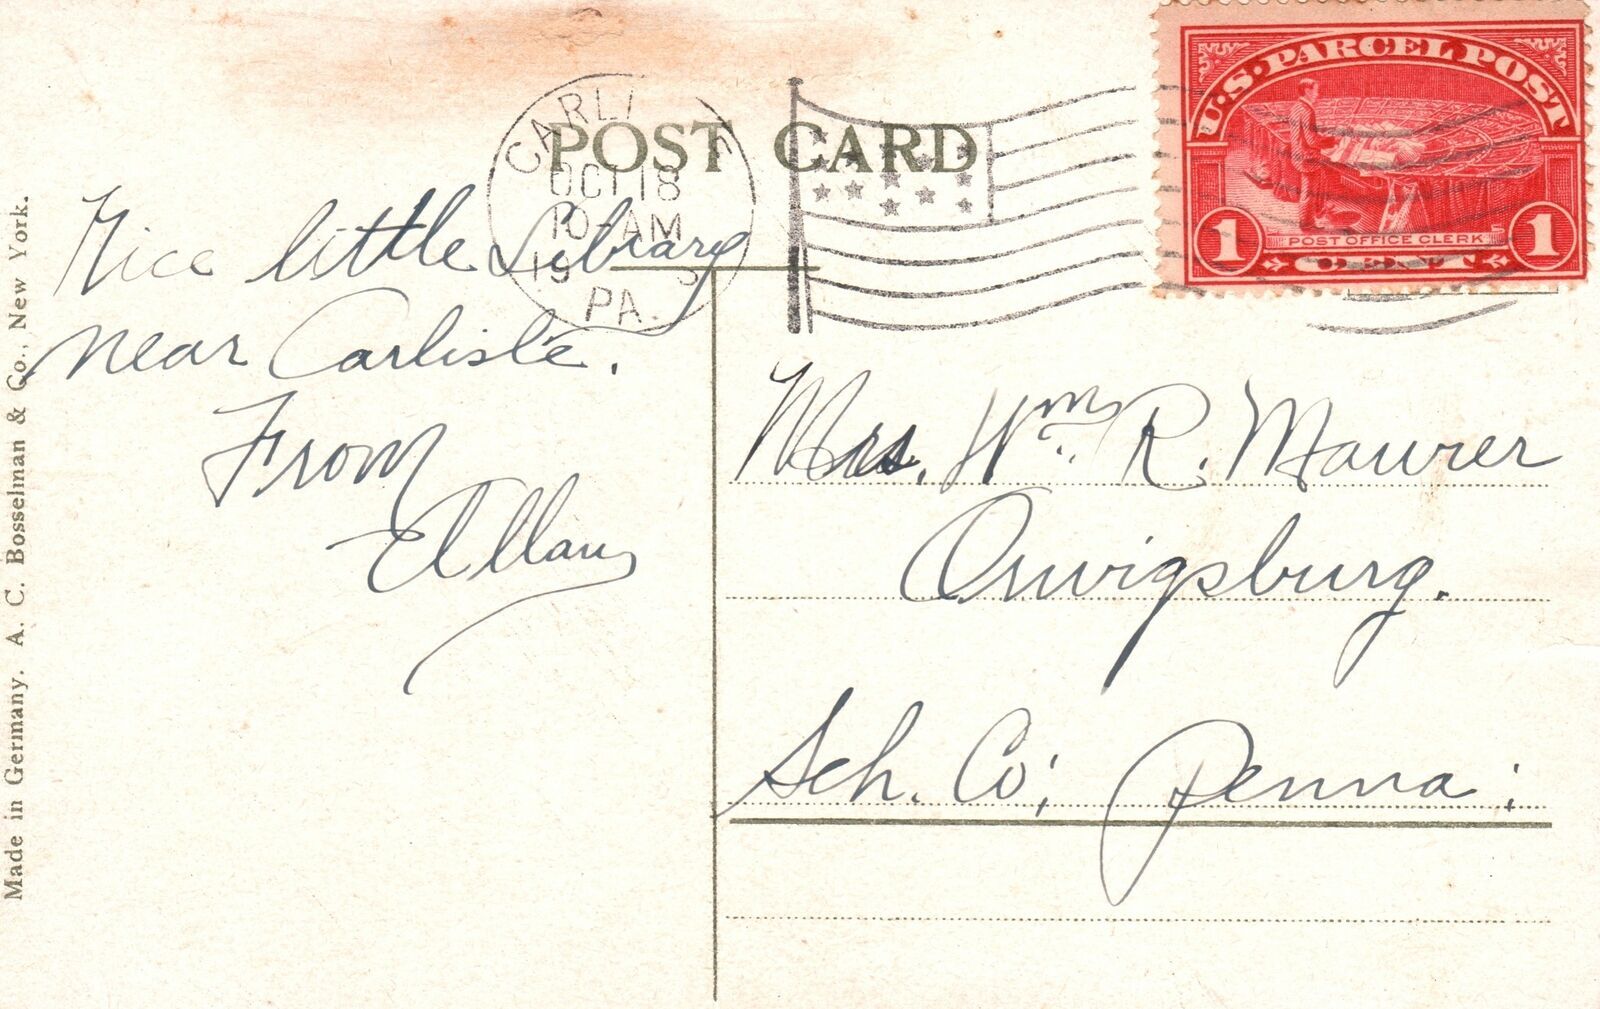 POST CARD
CARLI
OCT 18
10 AM
19 3
PA.
U.S. PARCEL POST
POST OFFICE CLERK
1 CENT 1
Nice little Library
near Carlisle.
From
Mrs. Wm. R. Maurer
Orwigsburg.
Sch. Co; Penna:
Made in Germany. A. C. Bosselman & Co., New York.